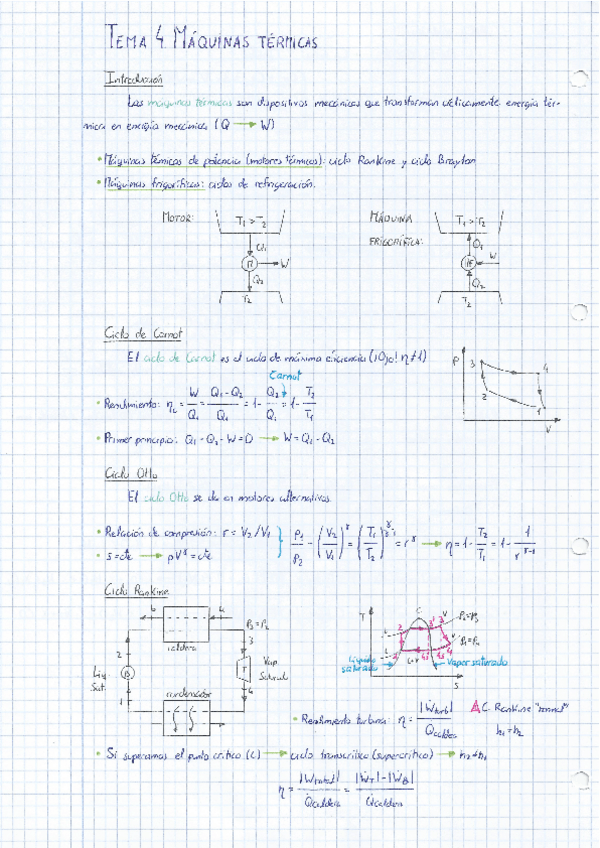 TEMA 4 MÁQUINAS TÉRMICAS
Introducción
Las máquinas térmicas son dispositivos mecánicos que transforman cíclicamente energía tér-
mica en energía mecánica (Q → W)
• Máquinas térmicas de potencia (motores térmicos): ciclo Rankine y ciclo Brayton
• Máquinas frigoríficas: ciclos de refrigeración.
MOTOR: T₁ > T₂ Q₁ W Q₂ T₂
MÁQUINA FRIGORÍFICA: T₁ > T₂ Q₁ W Q₂ T₂
Ciclo de Carnot
El ciclo de Carnot es el ciclo de máxima eficiencia (¡Ojo! η ≠ 1)
Carnot
• Rendimiento: = W/Q₁ = Q₁-Q₂/Q₁ = 1- Q₂/Q₁ = 1- T₂/T₁
P 3 4 2 1 V
• Primer principio: Q₁ - Q₂ - W = 0 → W = Q₁ - Q₂
Ciclo Otto
El ciclo Otto se da en motores alternativos.
• Relación de compresión: r = V₂/V₁
• s = cte → pV^γ = cte
→ η = 1 - T₂/T₁ = 1 - 1/r^γ-1
Ciclo Rankine
caldera
P₃ = P₂
2 3
Liq. Sat.
B T
Vap.
1 4
condensador
T C P₂ = P₃ P₁ = P₄
Líquido saturado
L+V
Vapor saturado
S
• Rendimiento turbina: η = |Wturb|/Qcaldera
C. Rankine "normal"
h₁ = h₂
• Si superamos el punto crítico (C) → ciclo transcrítico (supercrítico) →
η = = |WT| - |WB|/Qcaldera